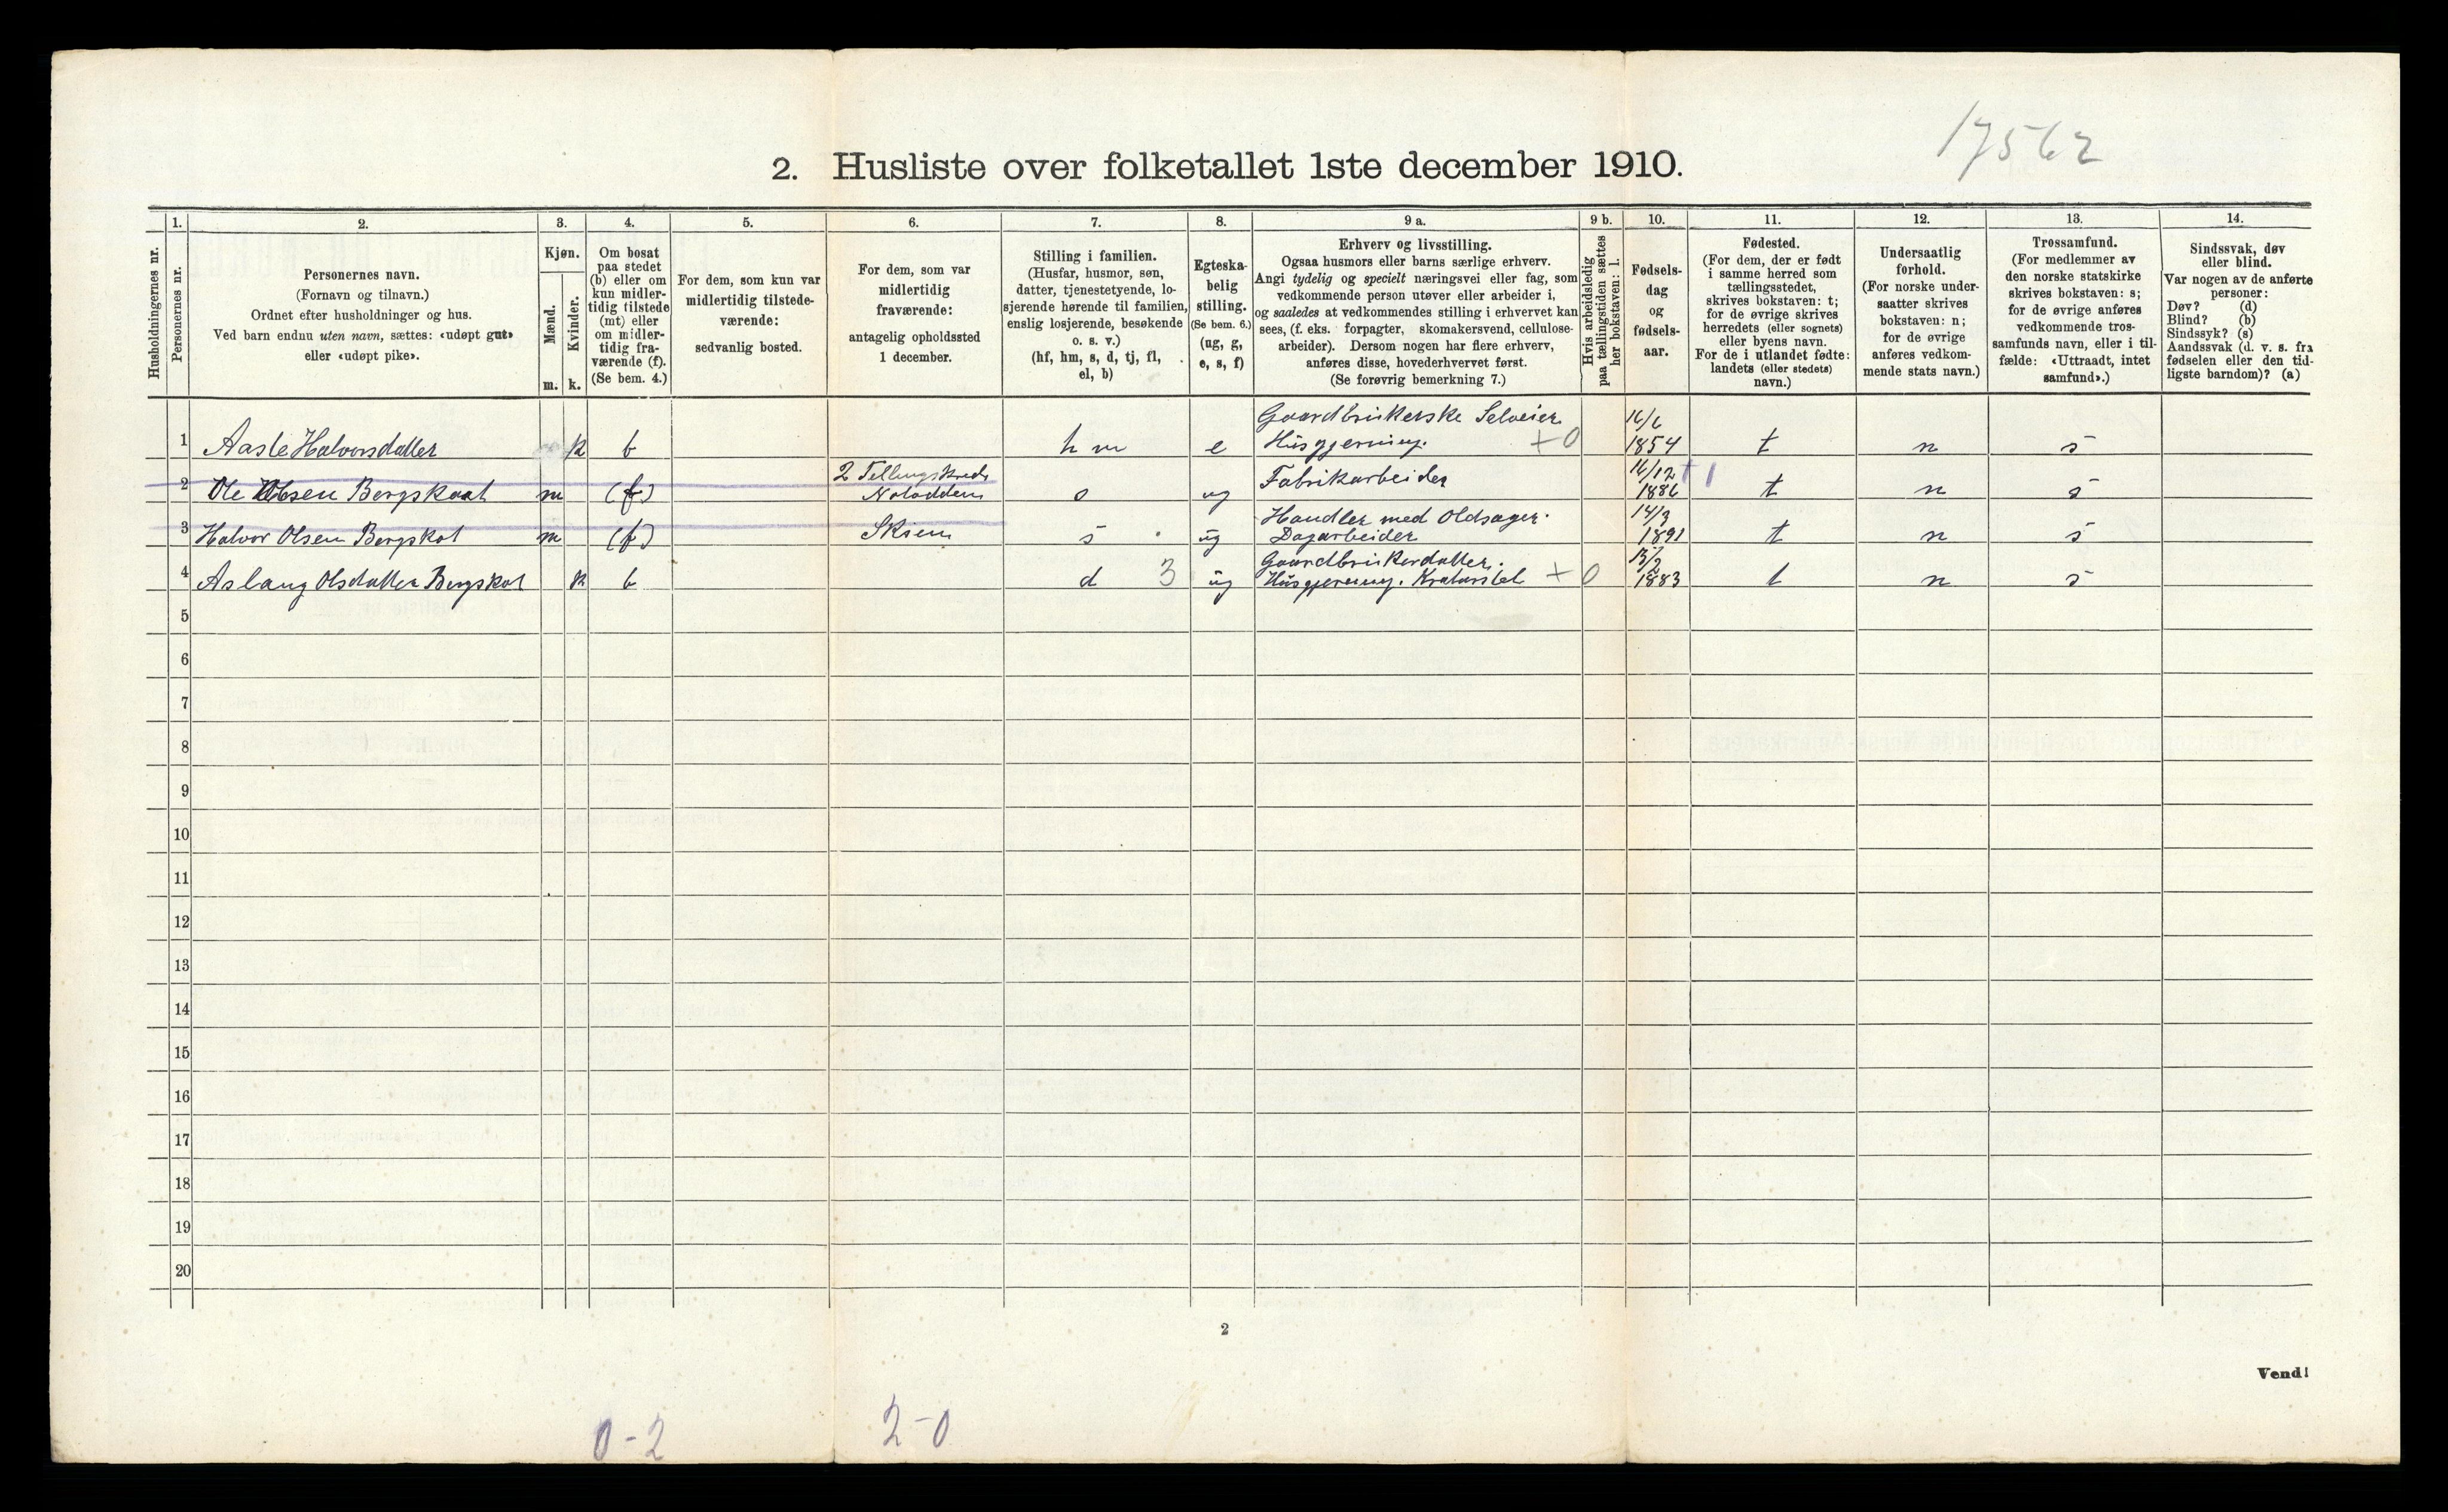 17562
2. Husliste over folketallet 1ste december 1910.
Husholdningernes nr.
1.
Personernes nr.
2.
Personernes navn.
(Fornavn og tilnavn.)
Ordnet efter husholdninger og hus.
Ved barn endnu uten navn, sættes: «udøpt gut»
eller «udøpt pike».
3.
Kjøn.
Mænd.
m.
Kvinder.
k.
4.
Om bosat
paa stedet
(b) eller om
kun midler-
tidig tilstede
(mt) eller
om midler-
tidig fra-
værende (f).
(Se bem. 4.)
5.
For dem, som kun var
midlertidig tilstede-
værende:
sedvanlig bosted.
6.
For dem, som var
midlertidig
fraværende:
antagelig opholdssted
1 december.
7.
Stilling i familien.
(Husfar, husmor, søn,
datter, tjenestetyende, lo-
sjerende hørende til familien,
enslig losjerende, besøkende
o. s. v.)
(hf, hm, s, d, tj, fl,
el, b)
8.
Egteska-
belig
stilling.
(Se bem. 6.)
(ug, g,
e, s, f)
9 a.
Erhverv og livsstilling.
Ogsaa husmors eller barns særlige erhverv.
Angi tydelig og specielt næringsvei eller fag, som
vedkommende person utøver eller arbeider i,
og saaledes at vedkommendes stilling i erhvervet kan
sees, (f. eks. forpagter, skomakersvend, cellulose-
arbeider). Dersom nogen har flere erhverv,
anføres disse, hovederhvervet først.
(Se forøvrig bemerkning 7.)
9 b.
Hvis arbeidsledig
paa tællingstiden sættes
her bokstaven: l.
10.
Fødsels-
dag
og
fødsels-
aar.
11.
Fødested.
(For dem, der er født
i samme herred som
tællingsstedet,
skrives bokstaven: t;
for de øvrige skrives
herredets (eller sognets)
eller byens navn.
For de i utlandet fødte:
landets (eller stedets)
navn.)
12.
Undersaatlig
forhold.
(For norske under-
saatter skrives
bokstaven: n;
for de øvrige
anføres vedkom-
mende stats navn.)
13.
Trossamfund.
(For medlemmer av
den norske statskirke
skrives bokstaven: s;
for de øvrige anføres
vedkommende tros-
samfunds navn, eller i til-
fælde: «Uttraadt, intet
samfund».)
14.
Sindssvak, døv
eller blind.
Var nogen av de anførte
personer:
Døv? (d)
Blind? (b)
Sindssyk? (s)
Aandssvak (d. v. s. fra
fødselen eller den tid-
ligste barndom)? (a)
Gaardbrukerske Selveier 16/6
1 Aasle Halvorsdatter k b h m e Husgjerning. + 0 1854 t n s
2 Tellingskreds 16/12 + 1
2 Ole Olsen Bergskaat m (f) Notodden ug Fabrikarbeider 1886 t n s
Handler med Oldsager. 14/3
3 Halvor Olsen Bergskot m (f) Skien s ug Dagarbeider 1891 t n s
Gaardbrukerdatter.
4 Aslaug Olsdatter Bergskot k b d 3 ug Husgjerning. Kreaturstel + 0 1883 t n s
5
6
7
8
9
10
11
12
13
14
15
16
17
18
19
20
2
Vend!
0-2
2-0